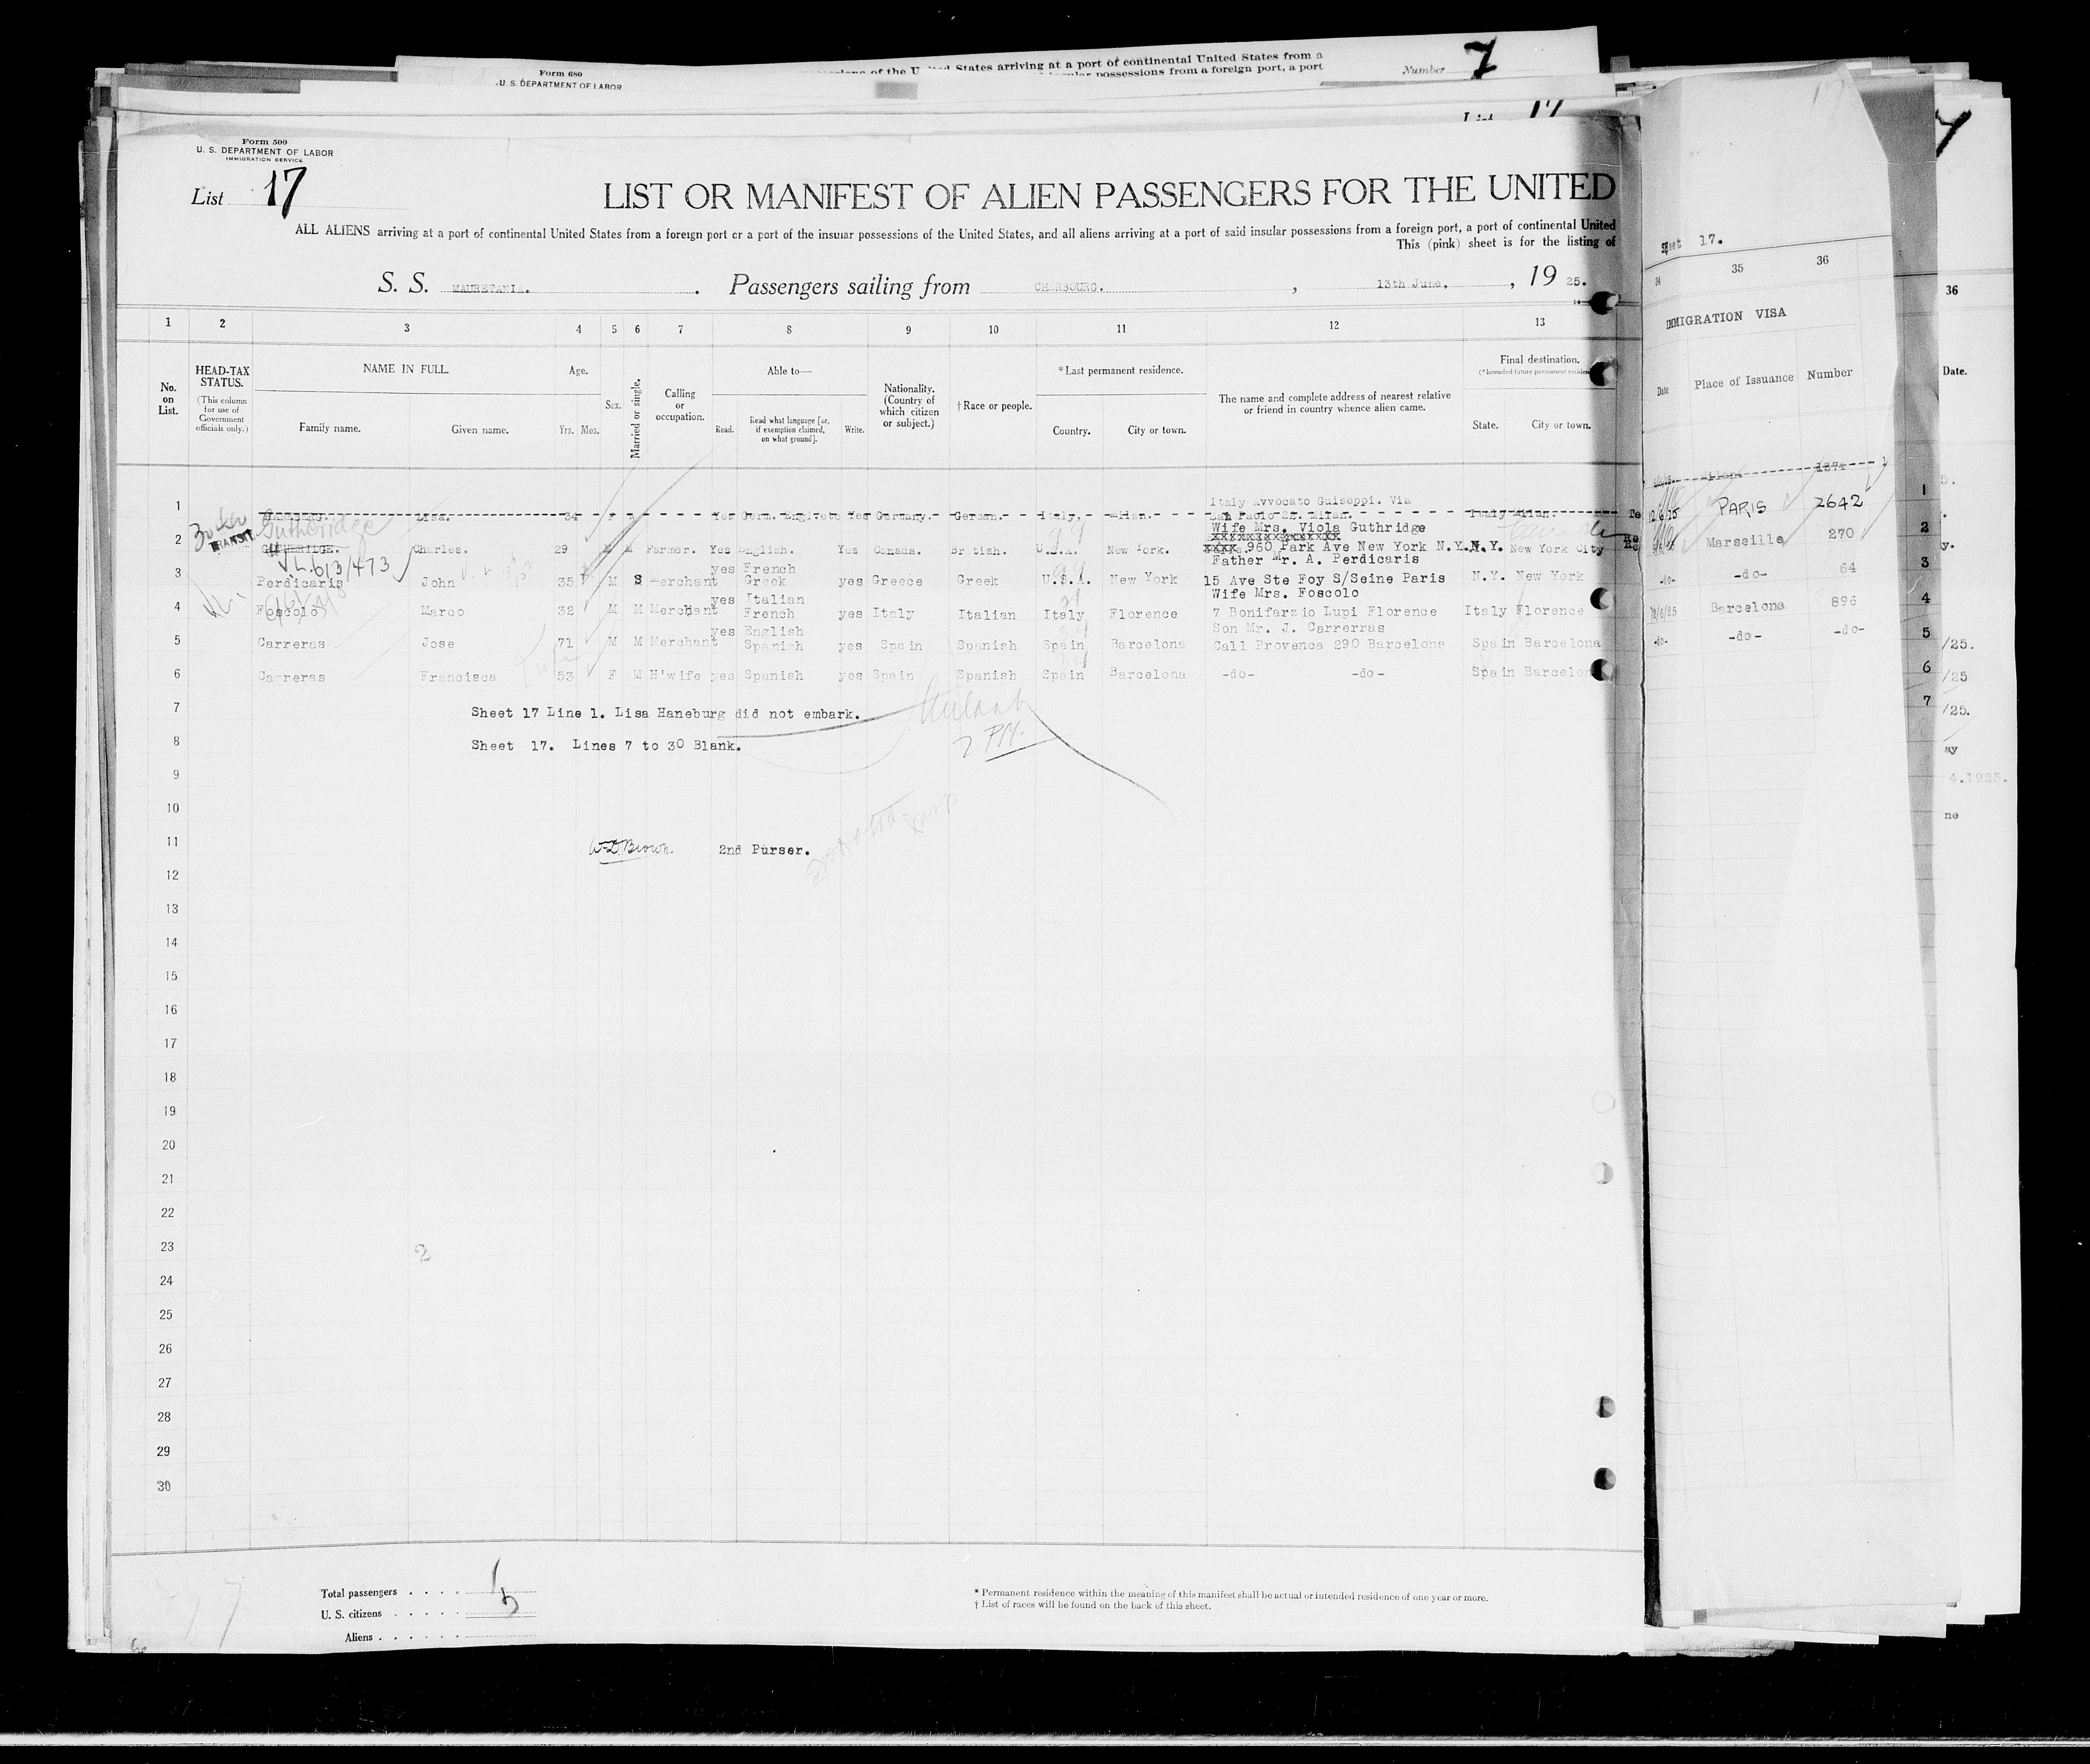 Form 680
U. S. DEPARTMENT OF LABOR
States arriving at a port of continental United States from a
possessions from a foreign port, a port
Number 7
List 17
Form 500
U. S. DEPARTMENT OF LABOR
IMMIGRATION SERVICE
List 17
LIST OR MANIFEST OF ALIEN PASSENGERS FOR THE UNITED
ALL ALIENS arriving at a port of continental United States from a foreign port or a port of the insular possessions of the United States, and all aliens arriving at a port of said insular possessions from a foreign port, a port of continental United
This (pink) sheet is for the listing of
S. S. MAURETANIA. Passengers sailing from CHERBOURG. , 13th June, , 19 25.
1 2 3 4 5 6 7 8 9 10 11 12 13
No. on List.
HEAD-TAX STATUS.
(This column for use of Government officials only.)
NAME IN FULL.
Family name. Given name.
Age.
Yrs. Mos.
Sex.
Married or single.
Calling or occupation.
Able to—
Read. Read what language [or, if exemption claimed, on what ground]. Write.
Nationality. (Country of which citizen or subject.)
† Race or people.
* Last permanent residence.
Country. City or town.
The name and complete address of nearest relative or friend in country whence alien came.
Final destination.
State. City or town.
Italy Avvocato Guiseppi. Via
1 Lisa. 34 F Yes Germ. Yes Germany. German. Italy. Milan. San Paolo Milan. Italy Milan.
Gutheridge
TRANSIT
Wife Mrs. Viola Guthridge
2 Charles. 29 M M Farmer. Yes English. Yes Canada. British. U.S.A. New York. 960 Park Ave New York N.Y. N.Y. New York City
613/473
yes French Father Mr. A. Perdicaris
3 Perdicaris John 35 M S Merchant Greek yes Greece Greek U.S.A. New York 15 Ave Ste Foy S/Seine Paris N.Y. New York
yes Italian Wife Mrs. Foscolo
4 Foscolo Marco 32 M M Merchant French yes Italy Italian Italy Florence 7 Bonifarzio Lupi Florence Italy Florence
yes English Son Mr. J. Carrerras
5 Carreras Jose 71 M M Merchant Spanish yes Spain Spanish Spain Barcelona Call Provenca 290 Barcelona Spain Barcelona
6 Carreras Francisca 53 F M H'wife yes Spanish yes Spain Spanish Spain Barcelona -do- -do- Spain Barcelona
7 Sheet 17 Line 1. Lisa Haneburg did not embark.
8 Sheet 17. Lines 7 to 30 Blank.
9
10
11 W D Brown. 2nd Purser.
12
13
14
15
16
17
18
19
20
21
22
23
24
25
26
27
28
29
30
Total passengers
U. S. citizens
Aliens
5
* Permanent residence within the meaning of this manifest shall be actual or intended residence of one year or more.
† List of races will be found on the back of this sheet.
17.
34 35 36
IMMIGRATION VISA
Date Place of Issuance Number
PARIS 2642
Marseille 270
-do- -do- 64
Barcelona 896
-do- -do- -do-
1
2
3
4
5
6
7
36
Date.
/25.
/25
/25.
ay
4.1925.
ne